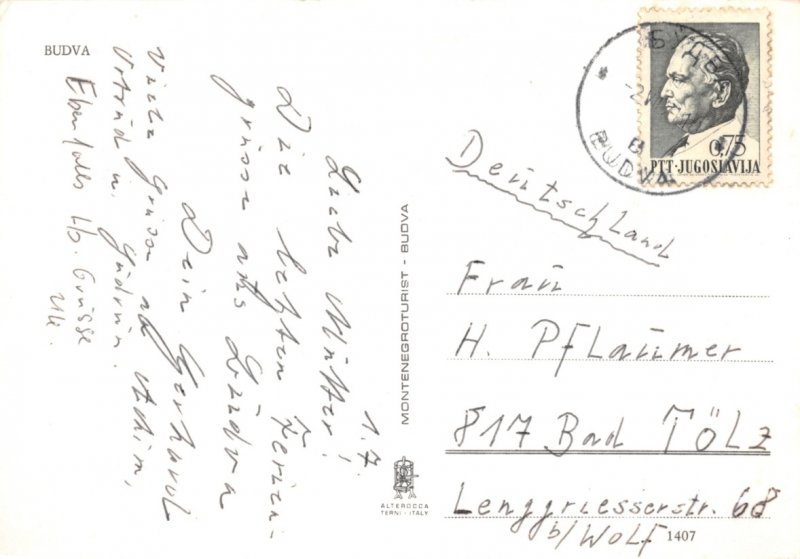 BUDVA
1.7.
Liebe Mutter!
Die letzten Ferien-
grüsse aus Budva
Dein Gerhard
Viele Grüsse
u. Gudrun.
Ebenfalls lb. Grüsse
MONTENEGROTURIST - BUDVA
ALTEROCCA
TERNI - ITALY
БУДВА
BUDVA
0.75
PTT·JUGOSLAVIJA
Deutschland
Frau
H. Pflaumer
817 Bad Tölz
Lenggriesserstr. 68
b/Wolf
1407